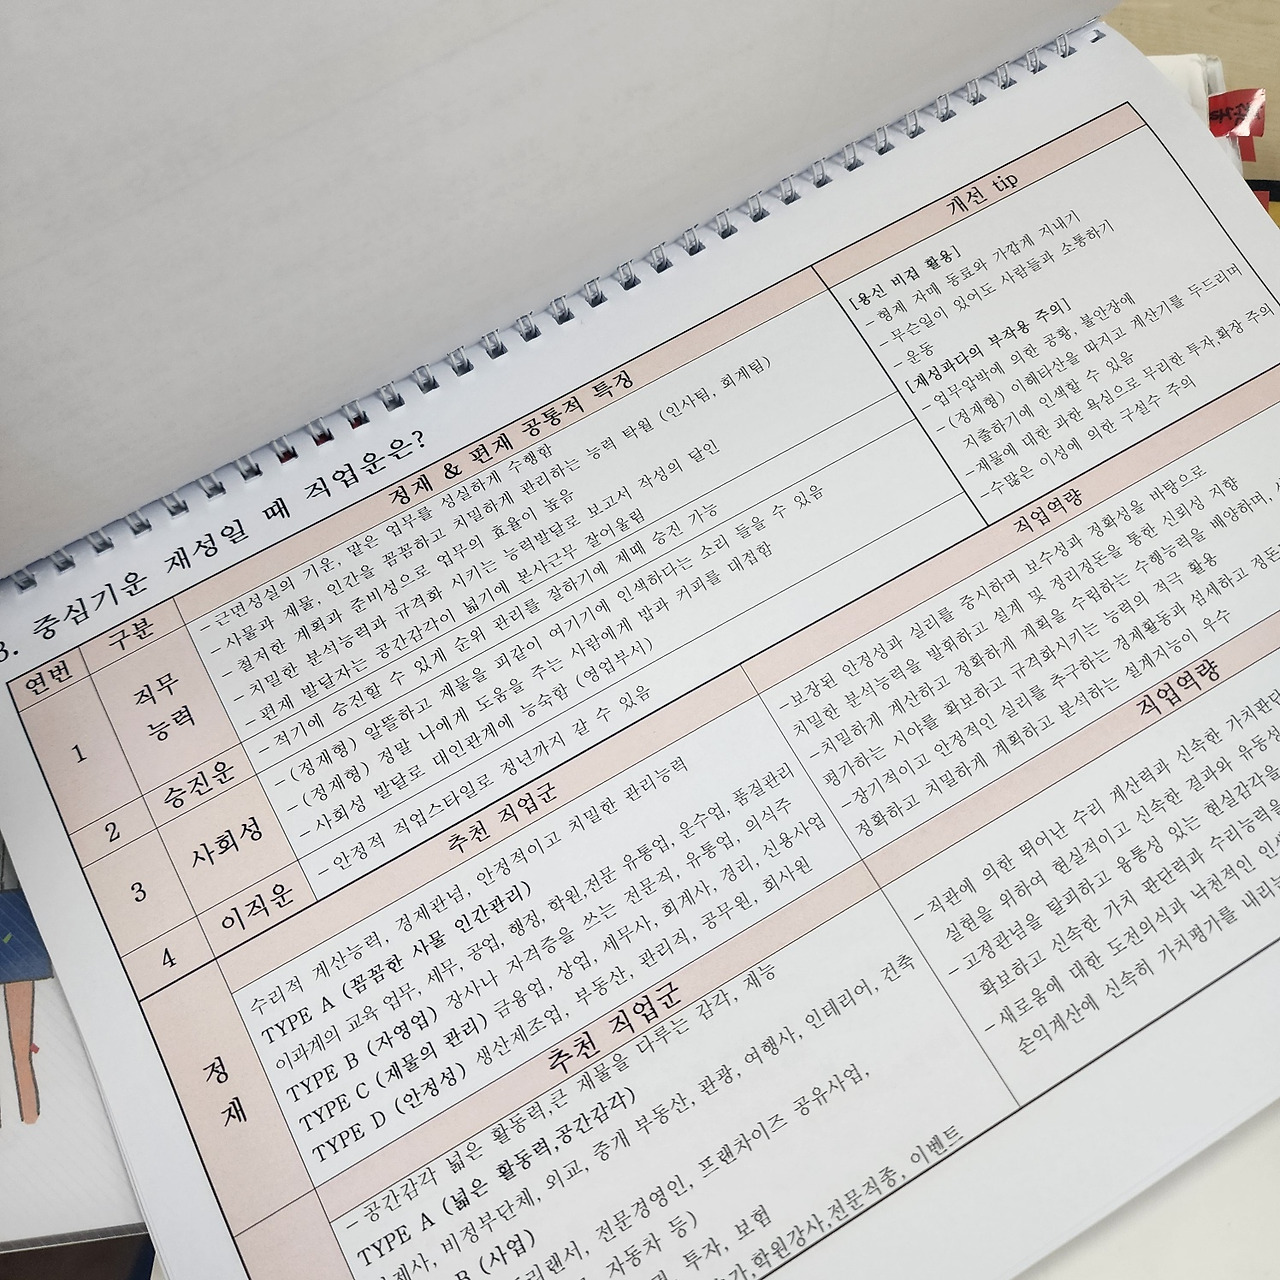 3. 중심기운 재성일 때 직업운은?
연번
구분
정재 & 편재 공통적 특징
개선 tip
1
직무
능력
- 근면성실의 기운, 맡은 업무를 성실하게 수행함
- 사물과 재물, 인간을 꼼꼼하고 치밀하게 관리하는 능력 탁월 (인사팀, 회계팀)
- 철저한 계획과 준비성으로 업무의 효율이 높음
- 치밀한 분석능력과 규격화 시키는 능력발달로 보고서 작성의 달인
- 편재 발달자는 공간감각이 넓기에 본사근무 잘어울림
2
승진운
- 적기에 승진할 수 있게 순위 관리를 잘하기에 제때 승진 가능
3
사회성
- (정재형) 알뜰하고 재물을 피같이 여기기에 인색하다는 소리 들을 수 있음
- (정재형) 정말 나에게 도움을 주는 사람에게 밥과 커피를 대접함
- 사회성 발달로 대인관계에 능숙함 (영업부서)
4
이직운
- 안정적 직업스타일로 정년까지 갈 수 있음
[용신 비겁 활용]
- 형제 자매 동료와 가깝게 지내기
- 무슨일이 있어도 사람들과 소통하기
- 운동
[재성과다의 부작용 주의]
- 업무압박에 의한 공황, 불안장애
- (정재형) 이해타산을 따지고 계산기를 두드리며
지출하기에 인색할 수 있음
- 재물에 대한 과한 욕심으로 무리한 투자,확장 주의
- 수많은 이성에 의한 구설수 주의
추천 직업군
직업역량
정
재
수리적 계산능력, 경제관념, 안정적이고 치밀한 관리능력
TYPE A (꼼꼼한 사물 인간관리)
이과계의 교육 업무, 세무, 공업, 행정, 학원,전문 유통업, 운수업, 품질관리
TYPE B (자영업) 장사나 자격증을 쓰는 전문직, 유통업, 의식주
TYPE C (재물의 관리) 금융업, 상업, 세무사, 회계사, 경리, 신용사업
TYPE D (안정성) 생산제조업, 부동산, 관리직, 공무원, 회사원
-보장된 안정성과 실리를 중시하며 보수성과 정확성을 바탕으로
치밀한 분석능력을 발휘하고 설계 및 정리정돈을 통한 신뢰성 지향
-치밀하게 계산하고 정확하게 계획을 수립하는 수행능력을 배양하며,
평가하는 시야를 확보하고 규격화시키는 능력의 적극 활용
-장기적이고 안정적인 실리를 추구하는 경제활동과 섬세하고
정확하고 치밀하게 계획하고 분석하는 설계지능이 우수
추천 직업군
직업역량
- 공간감각 넓은 활동력,큰 재물을 다루는 감각, 재능
TYPE A (넓은 활동력,공간감각)
비정부단체, 외교, 중개 부동산, 관광, 여행사, 인테리어, 건축
B (사업)
전문경영인, 프랜차이즈 공유사업,
자동차 등)
투자, 보험
학원강사,전문직종, 이벤트
- 직관에 의한 뛰어난 수리 계산력과 신속한
실현을 위하여 현실적이고 신속한 결과와
- 고정관념을 탈피하고 융통성 있는 현실감각을
확보하고 신속한 가치 판단력과 수리능력을
- 새로움에 대한 도전의식과 낙천적인
손익계산에 신속히 가치평가를 내리는